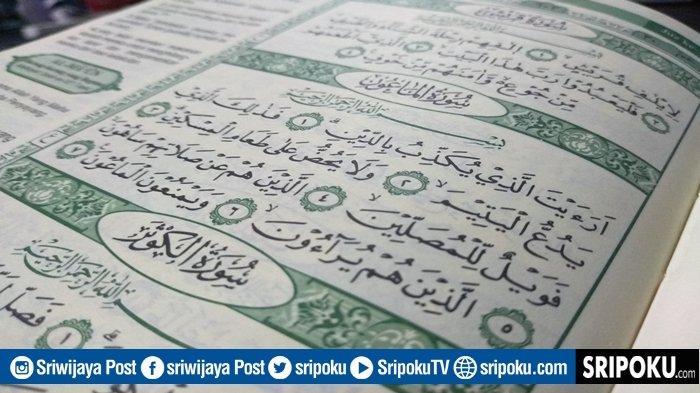 سُورَةُ قُرَيْشٍ
لِاِيْلٰفِ قُرَيْشٍۙ ١ اٖلٰفِهِمْ رِحْلَةَ الشِّتَاۤءِ وَالصَّيْفِ
فَلْيَعْبُدُوْا رَبَّ هٰذَا الْبَيْتِ ٣ الَّذِيْٓ اَطْعَمَهُمْ
مِّنْ جُوْعٍ وَّاٰمَنَهُمْ مِّنْ خَوْفٍ ٤
سُورَةُ الْمَاعُوْنَ
بِسْمِ اللّٰهِ الرَّحْمٰنِ الرَّحِيْمِ
اَرَءَيْتَ الَّذِيْ يُكَذِّبُ بِالدِّيْنِ ١ فَذٰلِكَ الَّذِيْ
يَدُعُّ الْيَتِيْمَ ٢ وَلَا يَحُضُّ عَلٰى طَعَامِ الْمِسْكِيْنِ ٣
فَوَيْلٌ لِّلْمُصَلِّيْنَ ٤ الَّذِيْنَ هُمْ عَنْ صَلَاتِهِمْ سَاهُوْنَ ٥
الَّذِيْنَ هُمْ يُرَاۤءُوْنَ ٦ وَيَمْنَعُوْنَ الْمَاعُوْنَ ٧
سُورَةُ الْكَوْثَرِ
بِسْمِ اللّٰهِ الرَّحْمٰنِ الرَّحِيْمِ
١ فَصَلِّ
Sriwijaya Post sriwijaya Post sripoku SripokuTV sripoku.com
SRIPOKU.com